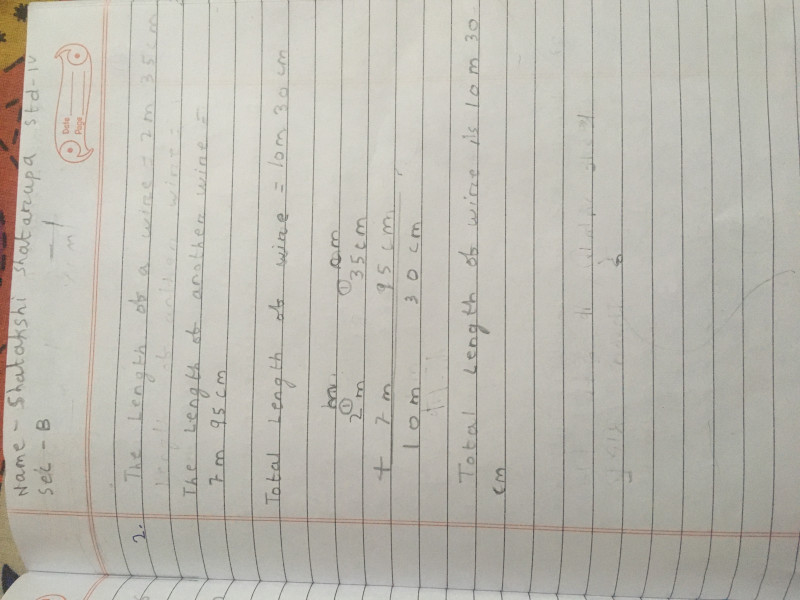 Name - Shatakshi Shatarupa Std-IV
Sec - B
Date
Page
2. The Length of a wire = 2m 35cm
The Length of another wire =
7m 95cm
Total Length of wire = 10m 30cm
m cm
① ①
2m 35cm
+ 7m 95cm
10m 30cm
Total Length of wire is 10m 30
cm